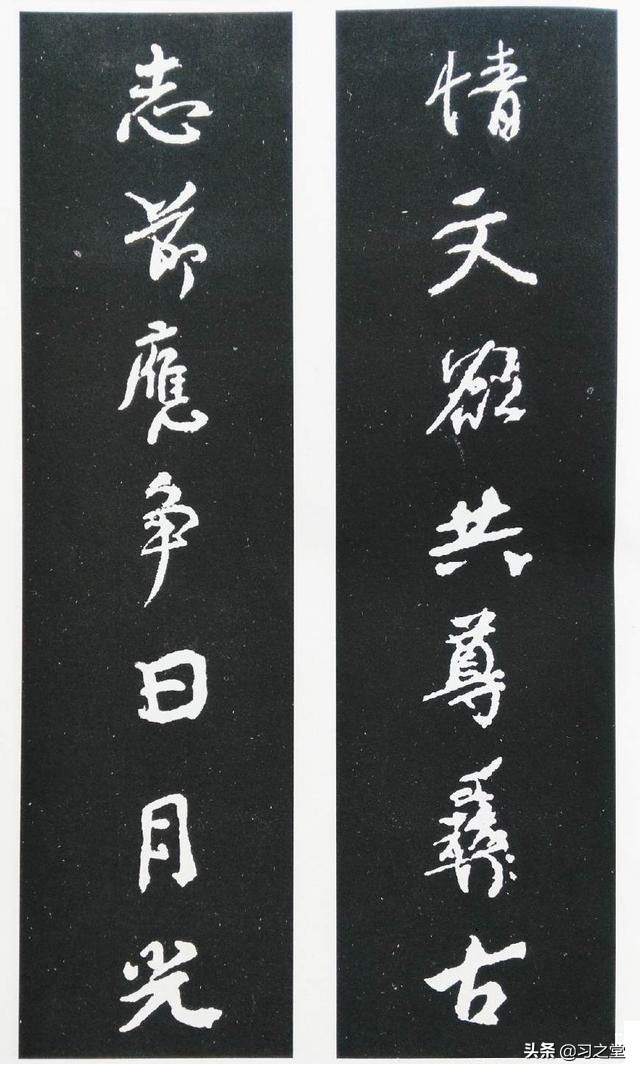 情文欲共尊彝古
志节應争日月光
头条 @习之堂